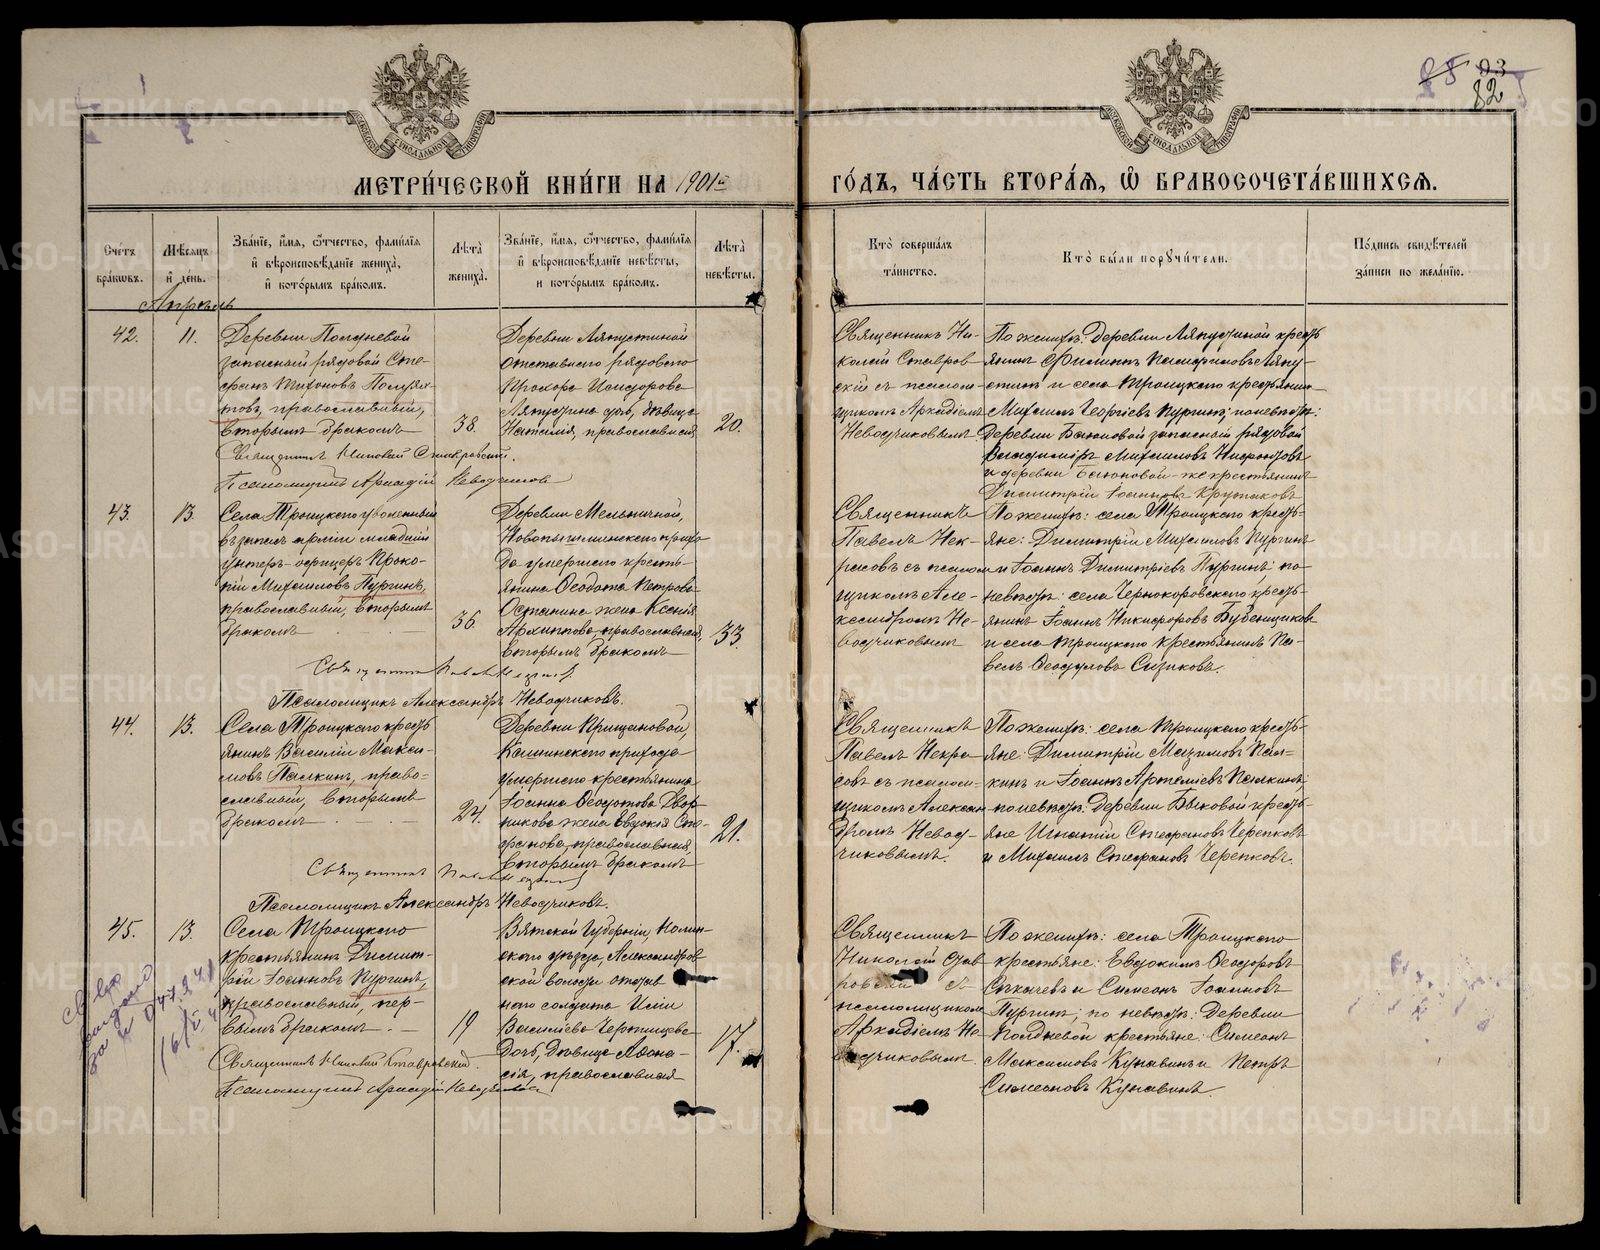 85 93
82
МЕТРИ́ЧЕСКОЙ КНИ́ГИ НА 1901й ГО́ДЪ, ЧА́СТЬ ВТОРА́Я, Ѽ БРАКОСОЧЕТА́ВШИХСЯ.
Сче́тъ бра́кѡвъ.
Мѣ́сяцъ и҆ де́нь.
Зва́нїе, и҆́мя, ѻ҆́тчество, фами́лїя и҆ вѣроисповѣ́данїе жениха̀, и҆ кото́рымъ бра́комъ.
Лѣ́та̀ жениха̀.
Зва́нїе, и҆́мя, ѻ҆́тчество, фами́лїя и҆ вѣроисповѣ́данїе невѣ́сты, и кото́рымъ бра́комъ.
Лѣ́та̀ невѣ́сты.
Кто̀ соверша́лъ та́инство.
Кто̀ бы́ли порꙋчи́тели.
По́дпись свидѣ́телей за́писи по жела́нїю.
Апрѣль
42.
11.
Деревни Полдневой
запасный рядовой Сте-
фанъ Тихоновъ
православный,
вторымъ бракомъ
38.
Деревни Ляпустиной
отставного рядового
Прохора Исидорова
Ляпустина дочь, дѣвица
Наталия, православная
20.
Священникъ Ни-
колай Ставров-
скій съ псалом-
щикомъ Аркадіемъ
Неводчиковымъ
По женихѣ: Деревни Ляпустиной кресть
янинъ Филиппъ Ляпу-
стинъ и села Троицкого крестьянин
Михаилъ Георгіевъ Пургинъ; по невѣстѣ:
Деревни запасный рядовой
Владиміръ Михаиловъ
и деревни же крестьянинъ
Димитрій Іоанновъ
Священникъ Николай Ставровский.
Псаломщикъ Аркадій Неводчиковъ
43.
13.
Села Троицкого уволенный
въ запасъ арміи младшій
унтеръ-офицеръ Проко-
пій Михаиловъ Пургинъ,
православный, вторымъ
бракомъ
36.
Деревни Мельничной,
Новопышминского прихо
да умершего кресть-
янина Ѳеодота Петрова
Останина жена Ксенія
Архиппова, православная,
вторымъ бракомъ
33.
Священникъ
Павелъ Нек-
расовъ съ псалом
щикомъ Але-
ксандромъ Не-
водчиковымъ
По женихѣ: села Троицкого кресть-
яне: Димитрій Михаиловъ Пургинъ
и Іоаннъ Димитріевъ Пургинъ; по
невѣстѣ: села Чернокоровского кресть-
янинъ Іоаннъ Никифоровъ Бубенщиков
и села Троицкого крестьянинъ Па-
велъ Ѳеодуловъ Сизиковъ.
Священникъ Павелъ Некрасов
Псаломщикъ Александръ Неводчиковъ.
44.
13.
Села Троицкого кресть
янинъ Василій Макси-
мовъ Палкинъ, право-
славный, вторымъ
бракомъ
24.
Деревни Прищановой,
Кашинского прихода
умершего крестьянина
Іоанна Ѳеодотова Двор-
никова жена Евдокія Сте-
фанова, православная,
вторымъ бракомъ
21.
Священникъ
Павелъ Некра
совъ съ псалом-
щикомъ Алексан
дромъ Невод-
чиковымъ.
По женихѣ: села Троицкого кресть-
яне: Димитрій Максимовъ Пал-
кинъ и Іоаннъ Артеміевъ Палкинъ;
по невѣстѣ: Деревни Быковой кресть-
яне Игнатій Стефановъ Черепковъ
и Михаилъ Стефановъ Черепковъ.
Священникъ Павелъ Некрасов
Псаломщикъ Александръ Неводчиковъ.
45.
13.
Села Троицкого
крестьянинъ Димит-
рій Іоанновъ Пургинъ,
православный, пер-
вымъ бракомъ.
19
Вятской губерніи, Нолин-
ского уѣзда, Александров
ской волости отстав
ного солдата Иліи
Василіева Чернышева
дочь, дѣвица Аѳана-
сія, православная
17.
Священникъ
Николай Став
ровскій съ
псаломщикомъ
Аркадіемъ Не-
водчиковымъ
По женихѣ: села Троицкого
крестьяне: Евдокимъ Ѳеодоровъ
и Симеонъ Іоанновъ
Пургинъ; по невѣстѣ: Деревни
Полдневой крестьяне: Симеонъ
Максимовъ Кунавинъ и Петръ
Симеоновъ Кунавинъ.
Священникъ Николай Ставровский.
Псаломщикъ Аркадій Неводчиковъ
METRIKI.GASO-URAL.RU